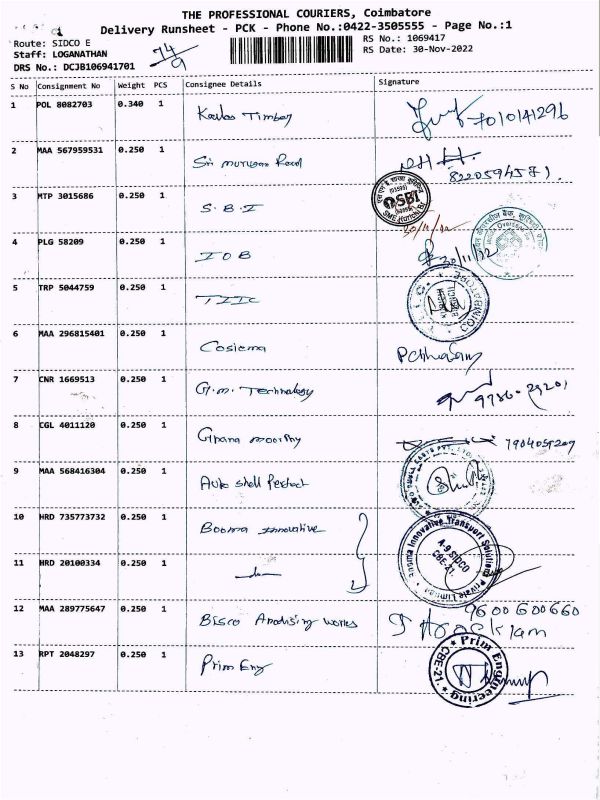 THE PROFESSIONAL COURIERS, Coimbatore
Delivery Runsheet - PCK - Phone No.:0422-3505555 - Page No.:1
Route: SIDCO E
RS No.: 1069417
Staff: LOGANATHAN
RS Date: 30-Nov-2022
DRS No.: DCJB106941701
74/9
S No Consignment No Weight PCS Consignee Details Signature
1 POL 8082703 0.340 1 7010141296
2 MAA 567959531 0.250 1 Sri murugan Road
3 MTP 3015686 0.250 1 S.B.I SBI
30/11/22
4 PLG 58209 0.250 1 IOB 30/11/22
5 TRP 5044759 0.250 1 TIIC
COIMBATORE
6 MAA 296815401 0.250 1 Cosiema
7 CNR 1669513 0.250 1 G.M. Technology
8 CGL 4011120 0.250 1 Gnana moorthy 7904059209
9 MAA 568416304 0.250 1 Auto shell Perfect
10 HRD 735773732 0.250 1 Booma Innovative
Booma Innovative Transport Solutions Private Limited
A-9 SIDCO
CBE-21.
11 HRD 20100334 0.250 1
12 MAA 289775647 0.250 1 Bisco Anodising works 9600600660
13 RPT 2048297 0.250 1 Prim Eng
Prim Engineering CBE-21.